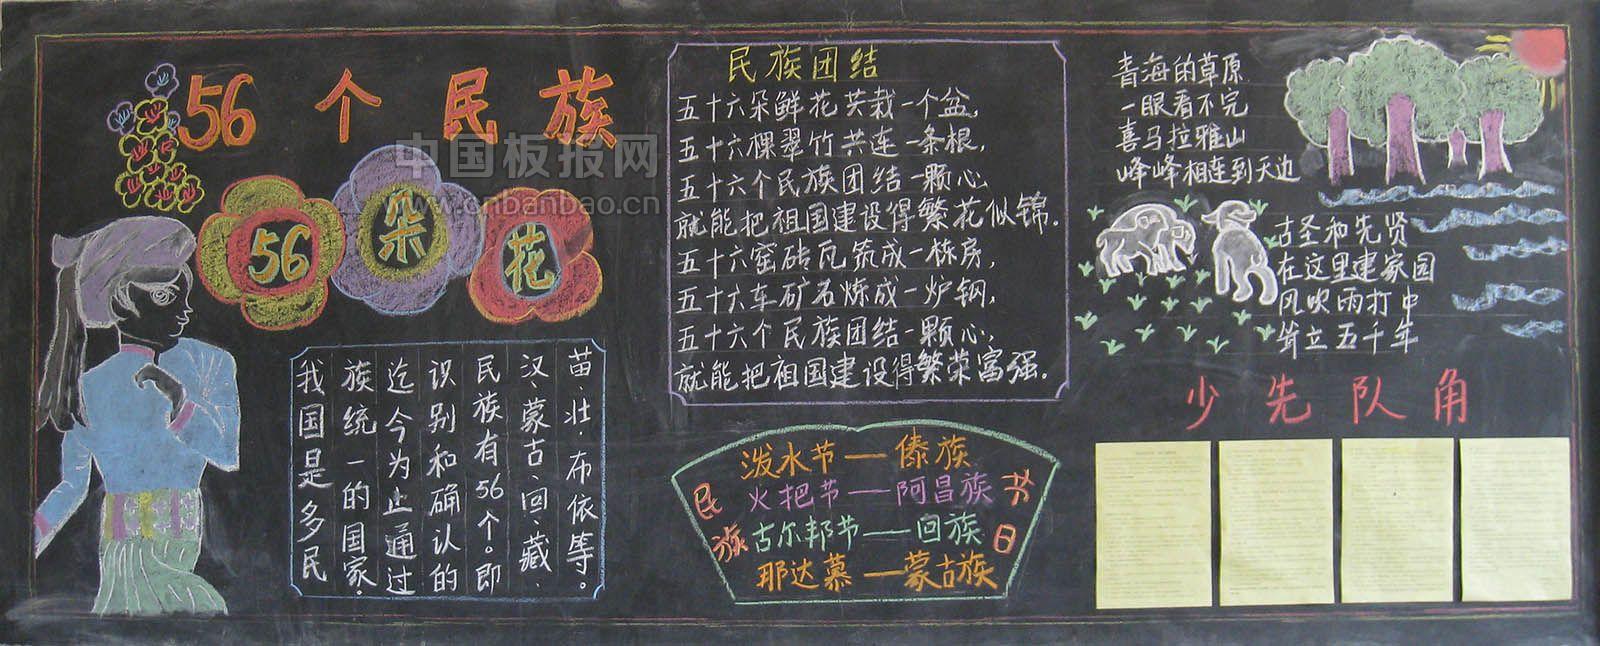 56个民族
56朵花
中国板报网
www.cnbanbao.cn
我国是多民
族统一的国家.
迄今为止通过
识别和确认的
民族有56个。即
汉、蒙古、回、藏、
苗、壮、布依等。
民族团结
五十六朵鲜花共栽一个盆,
五十六棵翠竹共连一条根,
五十六个民族团结一颗心
就能把祖国建设得繁花似锦.
五十六窑砖瓦筑成一栋房,
五十六车矿石炼成一炉钢,
五十六个民族团结一颗心,
就能把祖国建设得繁荣富强.
民族节日
泼水节—傣族
火把节—阿昌族
古尔邦节—回族
那达慕—蒙古族
青海的草原
一眼看不完
喜马拉雅山
峰峰相连到天边
古圣和先贤
在这里建家园
风吹雨打中
耸立五千年
少先队角